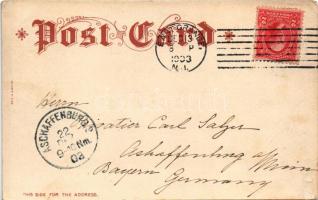 Post Card
1903
N.J.
Herrn
Carl Salzer
ASCHAFFENBURG
22
DEZ
9-10Nm.
03
Aschaffenburg a/Main
Bayern Germany
THIS SIDE FOR THE ADDRESS.